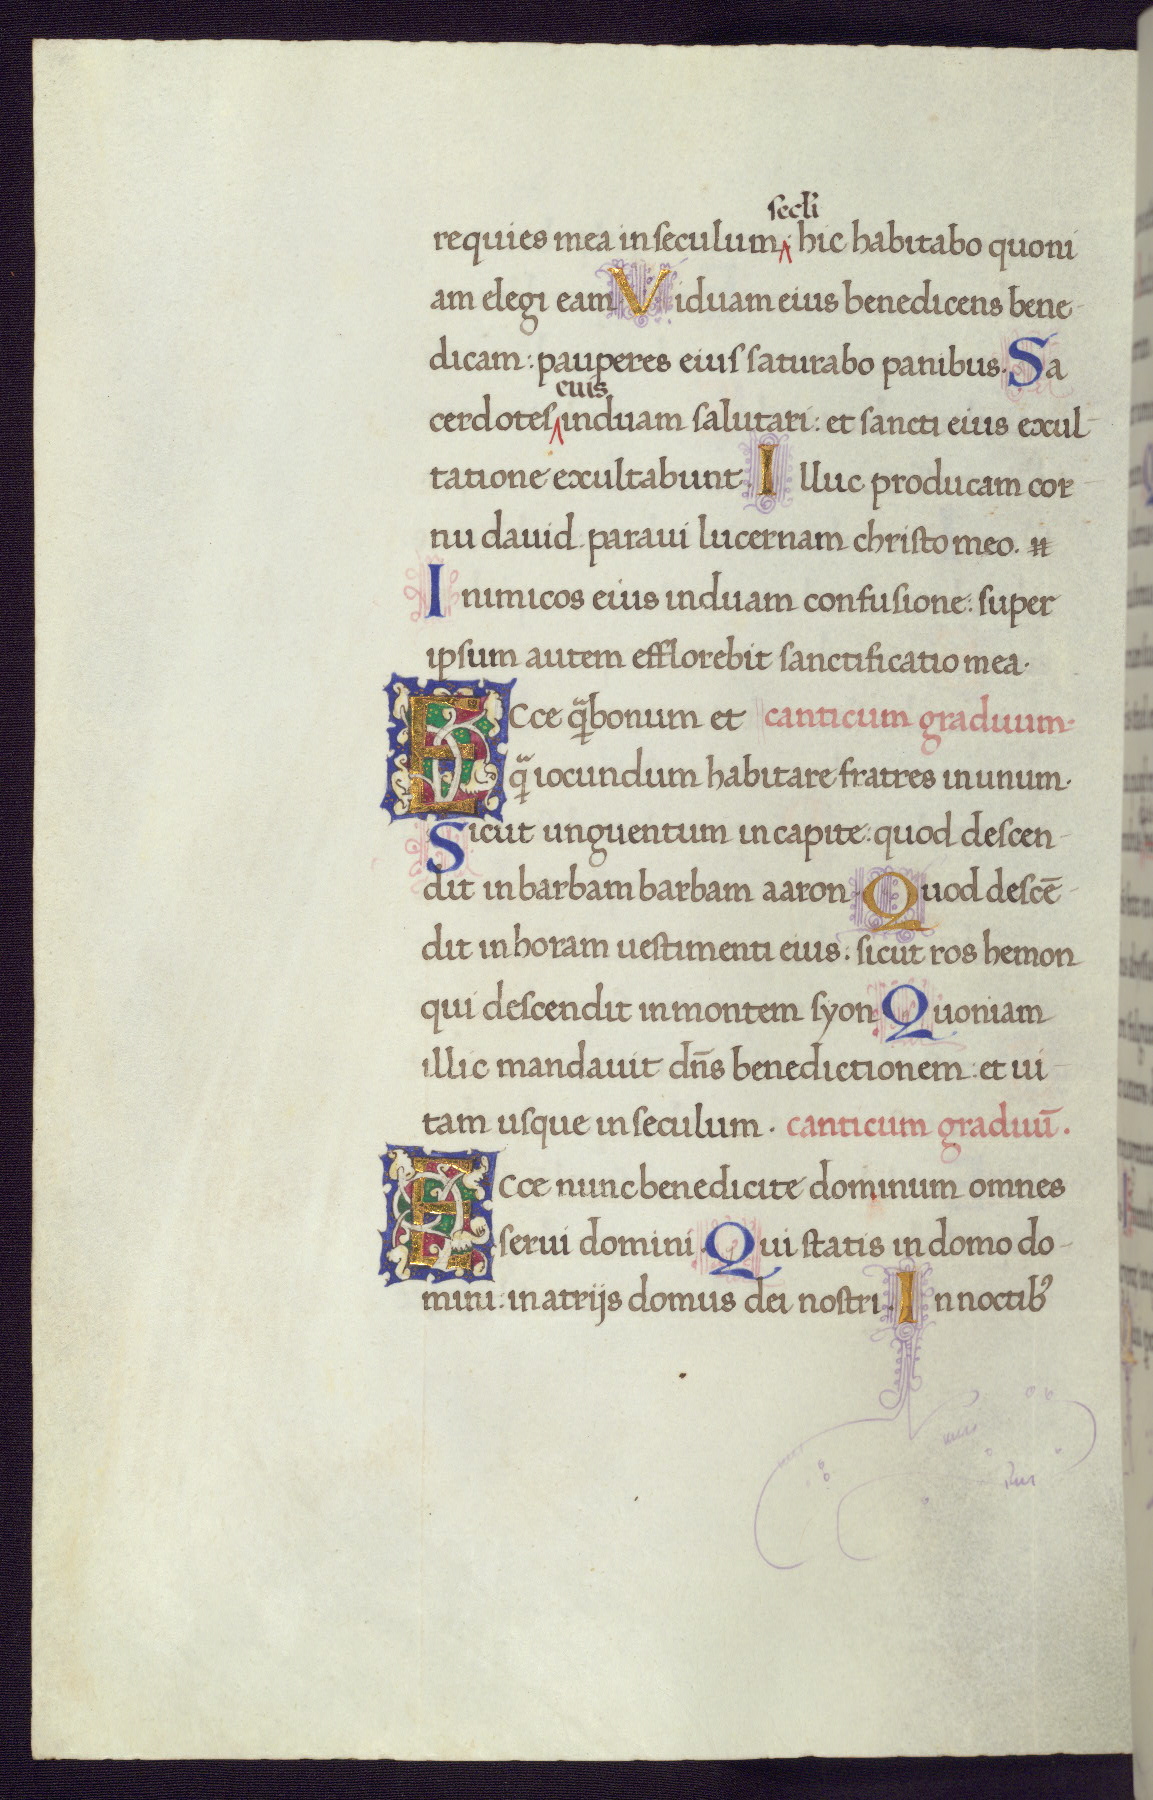 secli
requies mea in seculum hic habitabo quoni
am elegi eam Viduam eius benedicens bene-
dicam: pauperes eius saturabo panibus. Sa
eius
cerdotes induam salutari: et sancti eius exul-
tatione exultabunt. Illuc producam cor-
nu dauid. paraui lucernam christo meo.
Inimicos eius induam confusione: super
ipsum autem efflorebit sanctificatio mea.
Ecce q̃ bonum et canticum graduum.
q̃ iocundum habitare fratres in unum.
Sicut unguentum in capite: quod descen-
dit in barbam barbam aaron. Quod descē-
dit in horam uestimenti eius: sicut ros hemon
qui descendit in montem syon Quoniam
illic mandauit dn̄s benedictionem: et ui-
tam usque in seculum. canticum graduū.
Ecce nunc benedicite dominum omnes
serui domini. Qui statis in domo do-
mini: in atrijs domus dei nostri. In noctibꝰ